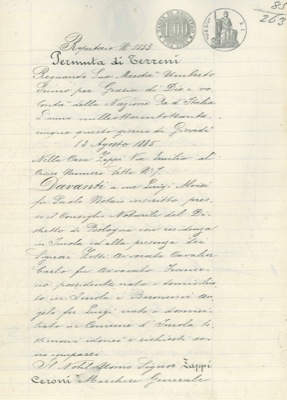 85
263
Repertorio N. 1553
Permuta di Terreni
Regnando Sua Maestà Umberto
Primo per Grazia di Dio e vo
lontà della Nazione Re d'Italia
L'anno milleottocentottanta
cinque questo giorno di Giovedì
13 Agosto 1885
Nella Casa Zappi Via Emilia al
Civico Numero sette N. 7
Davante a me Luigi
fu Paolo Notaro inscritto pres
so il Consiglio Notarile del Di
stretto di Bologna con residenza
in Imola ed alla presenza dei
Signori Zotti Avvocato Cavalier
Carlo fu Avvocato
possidente nato e domicilia
to in Imola e An
gelo fu Luigi nato e domici
liato in Comune di Imola te
stimoni idonei e richiesti so
no comparsi
Il Nobil Uomo Signor Zappi
Ceroni Marchese Generale